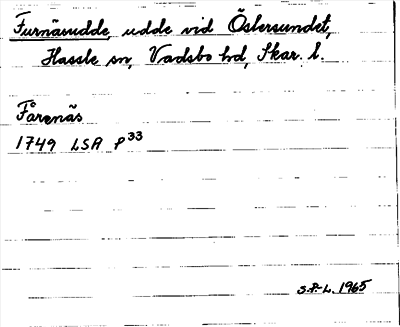 Furnäsudde, udde vid Östersundet,
Hassle sn, Vadsbo hd, Skar. l.
Fårenäs
1749 LSA P33
S.P-L. 1965